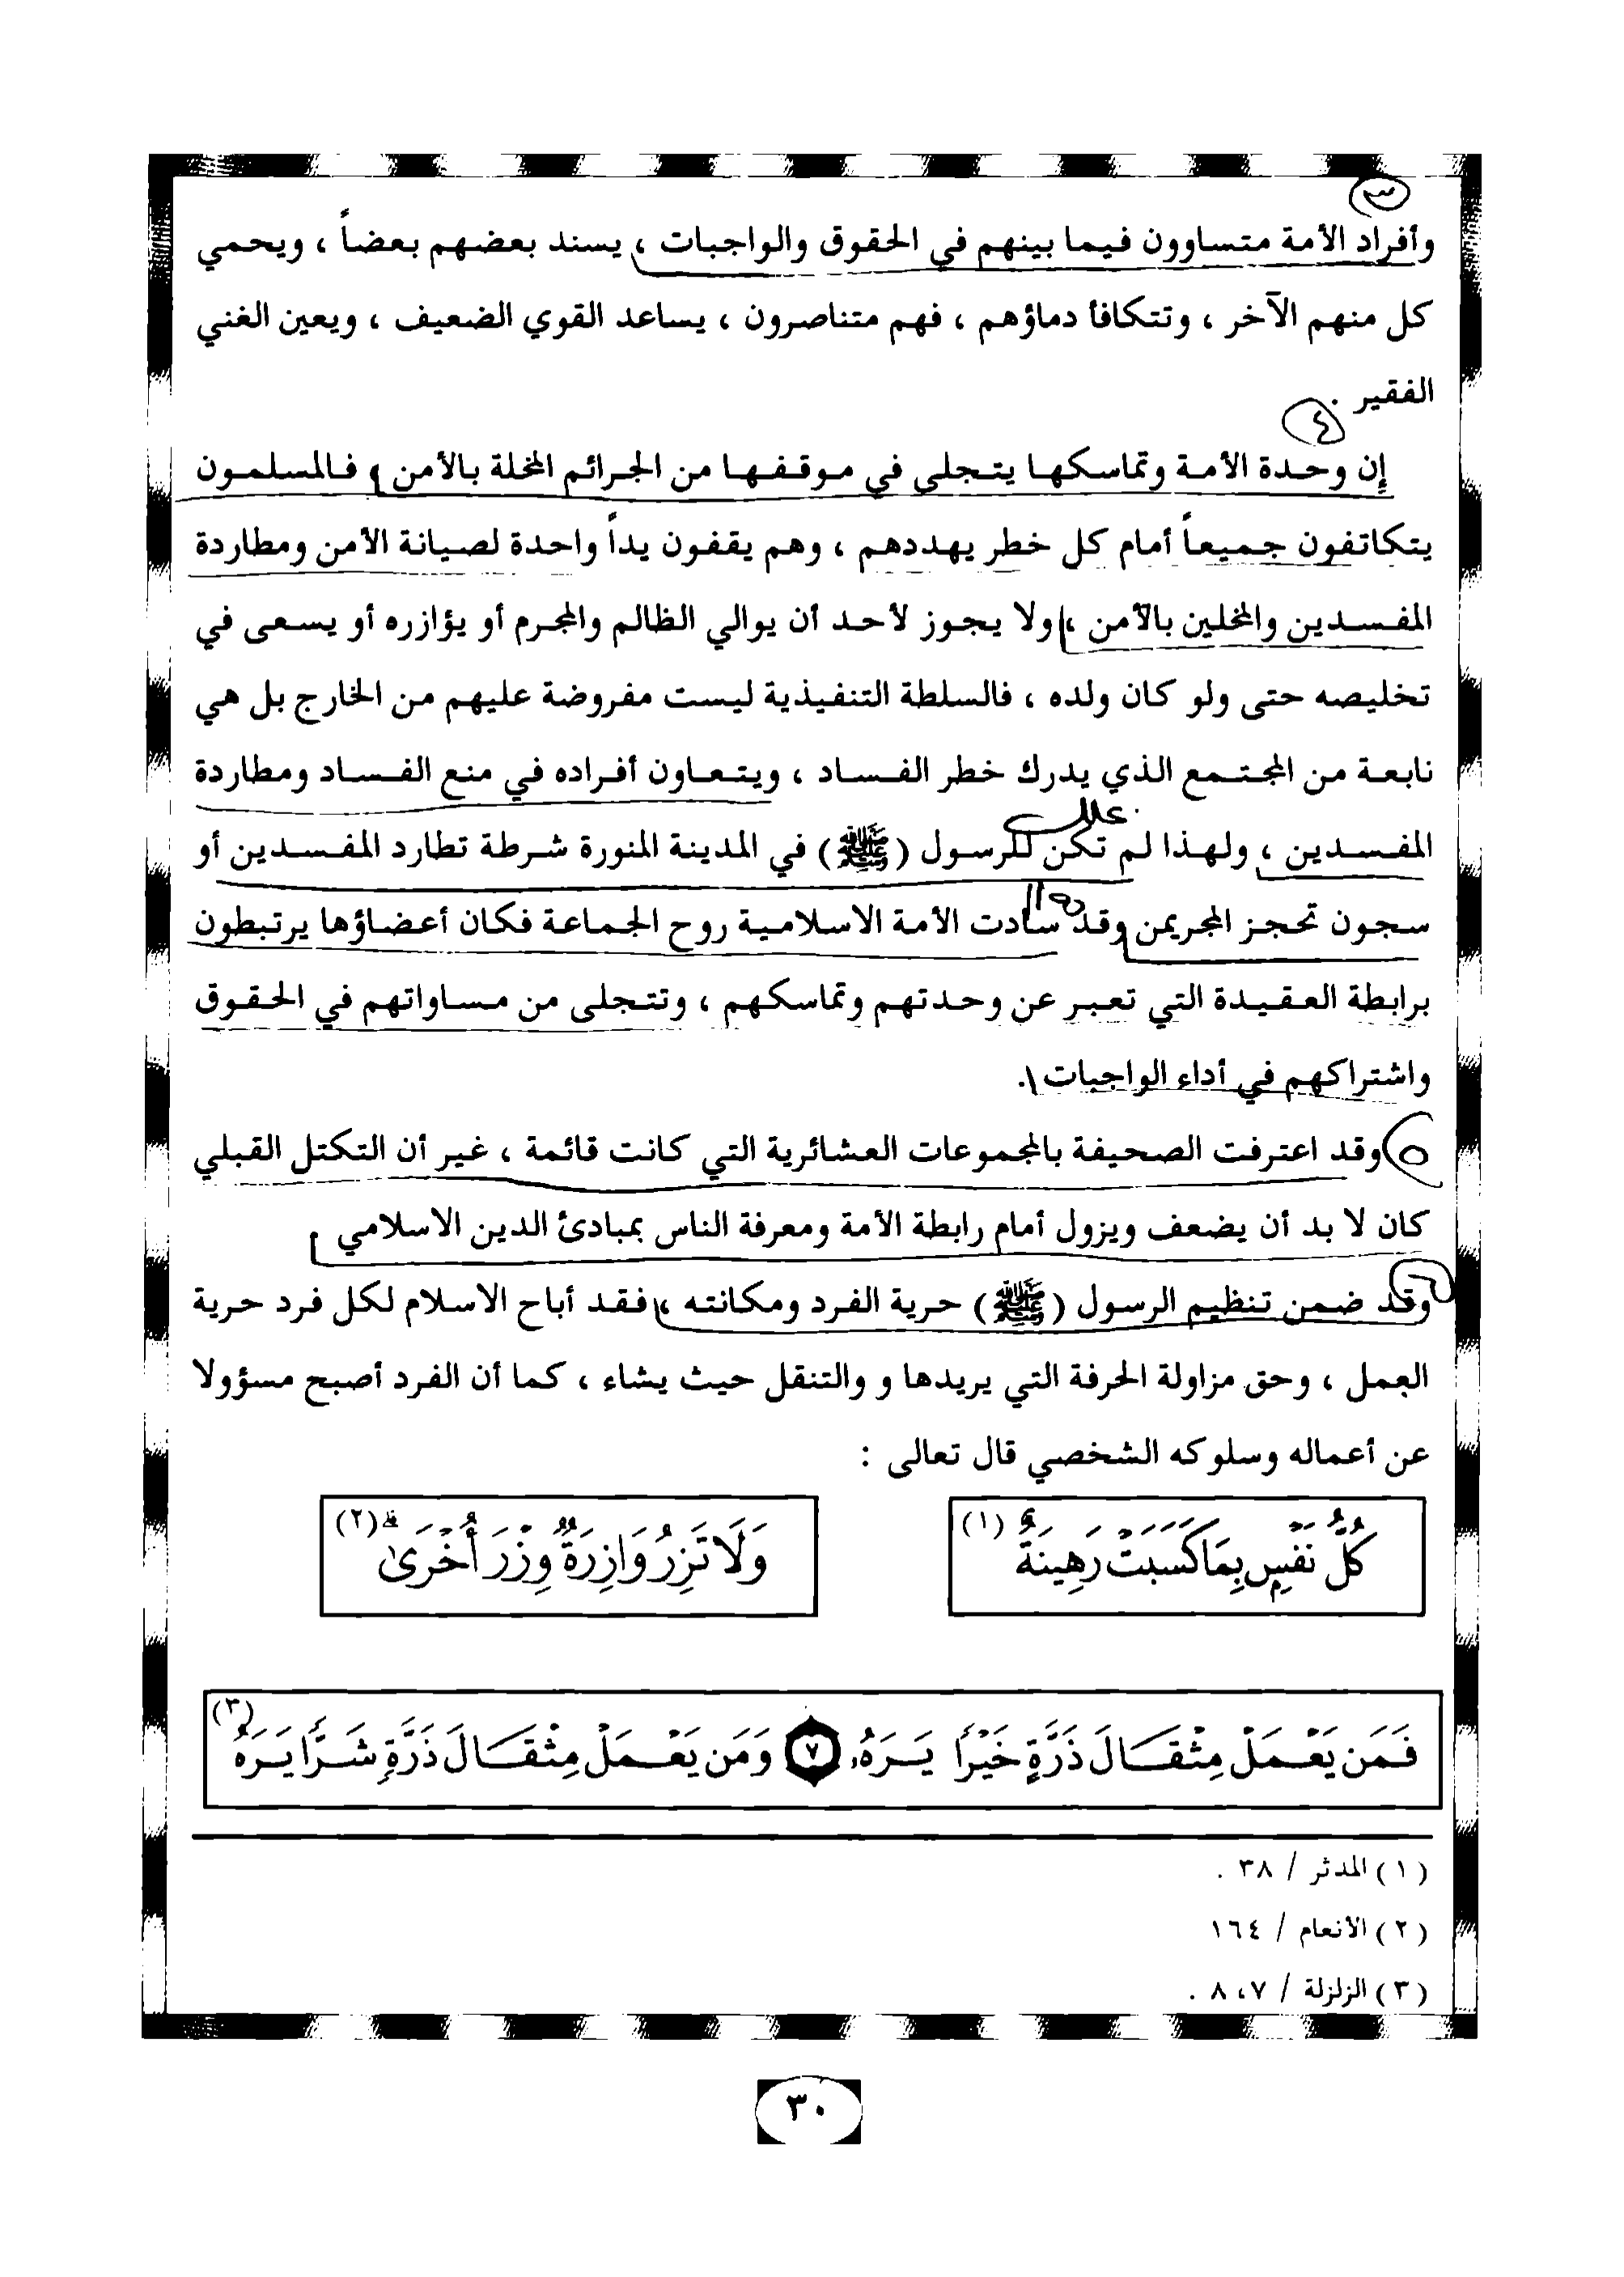 ٣
وأفراد الأمة متساوون فيما بينهم في الحقوق والواجبات ، يسند بعضهم بعضاً ، ويحمي
كل منهم الآخر ، وتتكافأ دماؤهم ، فهم متناصرون ، يساعد القوي الضعيف ، ويعين الغني
الفقير .
٤
إن وحدة الأمة وتماسكها يتجلى في موقفها من الجرائم المخلة بالأمن ، فالمسلمون
يتكاتفون جميعاً أمام كل خطر يهددهم ، وهم يقفون يداً واحدة لصيانة الأمن ومطاردة
المفسدين والمخلين بالأمن ، ولا يجوز لأحد أن يوالي الظالم والمجرم أو يؤازره أو يسعى في
تخليصه حتى ولو كان ولده ، فالسلطة التنفيذية ليست مفروضة عليهم من الخارج بل هي
نابعة من المجتمع الذي يدرك خطر الفساد ، ويتعاون أفراده في منع الفساد ومطاردة
علل
المفسدين ، ولهذا لم تكن للرسول (ﷺ) في المدينة المنورة شرطة تطارد المفسدين أو
سجون تحجز المجريمن وقد سادت الأمة الاسلامية روح الجماعة فكان أعضاؤها يرتبطون
برابطة العقيدة التي تعبر عن وحدتهم وتماسكهم ، وتتجلى من مساواتهم في الحقوق
واشتراكهم في أداء الواجبات .
٥ وقد اعترفت الصحيفة بالمجموعات العشائرية التي كانت قائمة ، غير أن التكتل القبلي
كان لا بد أن يضعف ويزول أمام رابطة الأمة ومعرفة الناس بمبادئ الدين الاسلامي
٦
وقد ضمن تنظيم الرسول (ﷺ) حرية الفرد ومكانته ، فقد أباح الاسلام لكل فرد حرية
العمل ، وحق مزاولة الحرفة التي يريدها و والتنقل حيث يشاء ، كما أن الفرد أصبح مسؤولا
عن أعماله وسلوكه الشخصي قال تعالى :
كُلُّ نَفْسٍ بِمَا كَسَبَتْ رَهِينَةٌ (١)
وَلَا تَزِرُ وَازِرَةٌ وِزْرَ أُخْرَىٰ (٢)
فَمَن يَعْمَلْ مِثْقَالَ ذَرَّةٍ خَيْرًا يَرَهُۥ ٧ وَمَن يَعْمَلْ مِثْقَالَ ذَرَّةٍ شَرًّا يَرَهُ (٣)
(١) المدثر / ٣٨ .
(٢) الأنعام / ١٦٤
(٣) الزلزلة / ٧،٨ .
٣٠